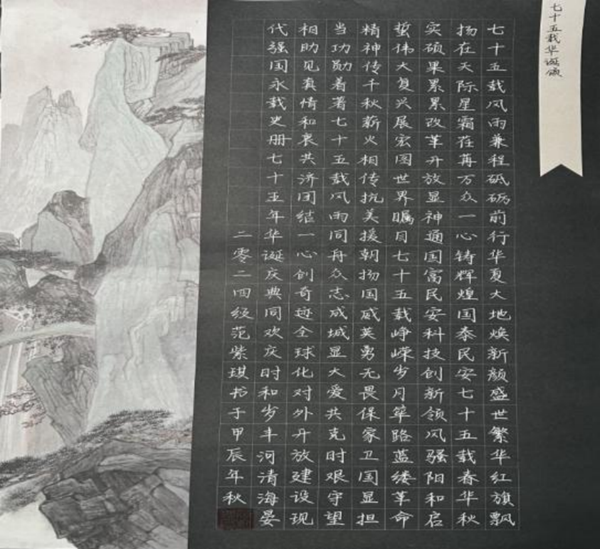 七十五载华诞颂
七十五载风雨兼程砥砺前行华夏大地焕新颜盛世繁华红旗飘
扬在天际星霜荏苒万众一心铸辉煌国泰民安七十五载春华秋
实硕果累累改革开放显神通国富民安科技创新领风强阳和启
蛰伟大复兴展宏图世界瞩目七十五载峥嵘岁月筚路蓝缕革命
精神传千秋薪火相传抗美援朝扬国威英勇无畏保家卫国显担
当功勋着著七十五载风雨同舟众志成城显大爱共克时艰守望
相助见真情和衷共济团结一心创奇迹全球化对外开放建设现
代强国永载史册七十五年华诞庆典同欢庆时和岁丰河清海晏
二零二四级范紫琪书于甲辰年秋